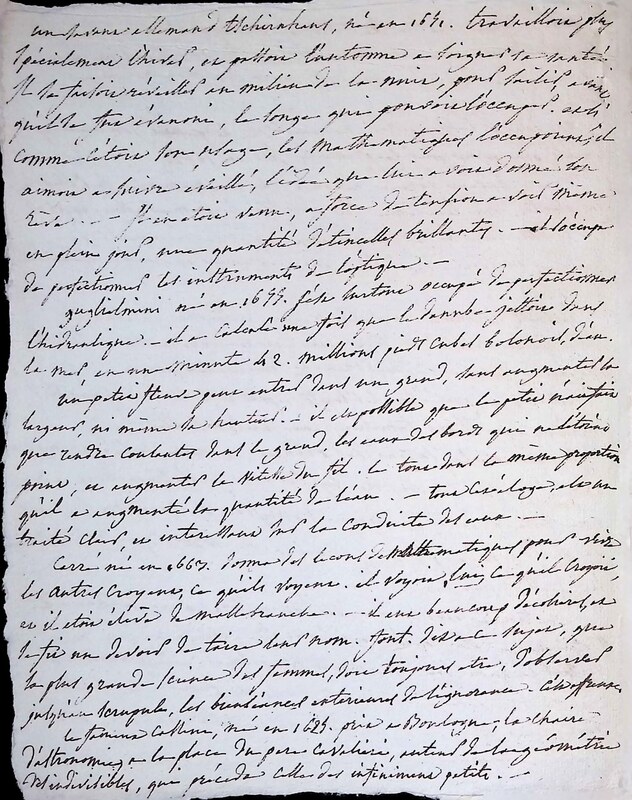 un savant allemand tschirnhaus, né en 1651. travailloit plus
spécialement l'hiver, et passoit l'automne a soigner sa santé.
Il se faisoit réveiller au milieu de la nuit, pour saisir, avant
qu'il se fut évanoui, le songe qui pouvoit l'occuper. et si
comme c'étoit son usage, les mathématiques l'occupoient, il
aimoit a suivre éveillé, l'idée que lui avoit donné son
rêve. — Il en étoit venu, a force de tension a voir même
en plein jour, une quantité d'étincelles brillantes. — il s'occupa
de perfectionner les instruments de l'optique. —
guglielmini né en 1655. s'est surtout occupé de perfectionner
l'hidraulique. — il a calculé une fois que le danube jettoit dans
la mer en une minute 42. millions pieds cubes bolonois d'eau.
un petit fleuve peut entrer dans un grand, sans augmenter sa
largeur, ni même sa hauteur. — il est possible que le petit n'ait fait
que rendre coulantes dans le grand, les eaux des bords qui ne l'étoient
point, et augmenter la vitesse du fil. le tout dans la même proportion
qu'il a augmenté la quantité de l'eau. — tout cet éloge, est un
traité clair, et interessant sur la conduite des eaux. —
Carré né en 1663. donna des lecons de mathematiques pour vivre
les autres croyent, ce qu'ils voyent. il voyoit, lui, ce qu'il croyoit,
et il étoit élève de mallebranche. — il eut beaucoup d'écolieres, et
se fit un devoir de taire leur nom. font. dit a ce sujet, que
la plus grande science des femmes, doit toujours etre, d'observer
jusqu'au scrupule, les bienséances exterieures de l'ignorance.
le fameux Cassini, né en 1625. prit a Boulogne, la chaire
d'astronomie, a la place du pere cavaliere, auteur de la géométrie
des indivisibles, qui précéda celle des infinimens petits. —